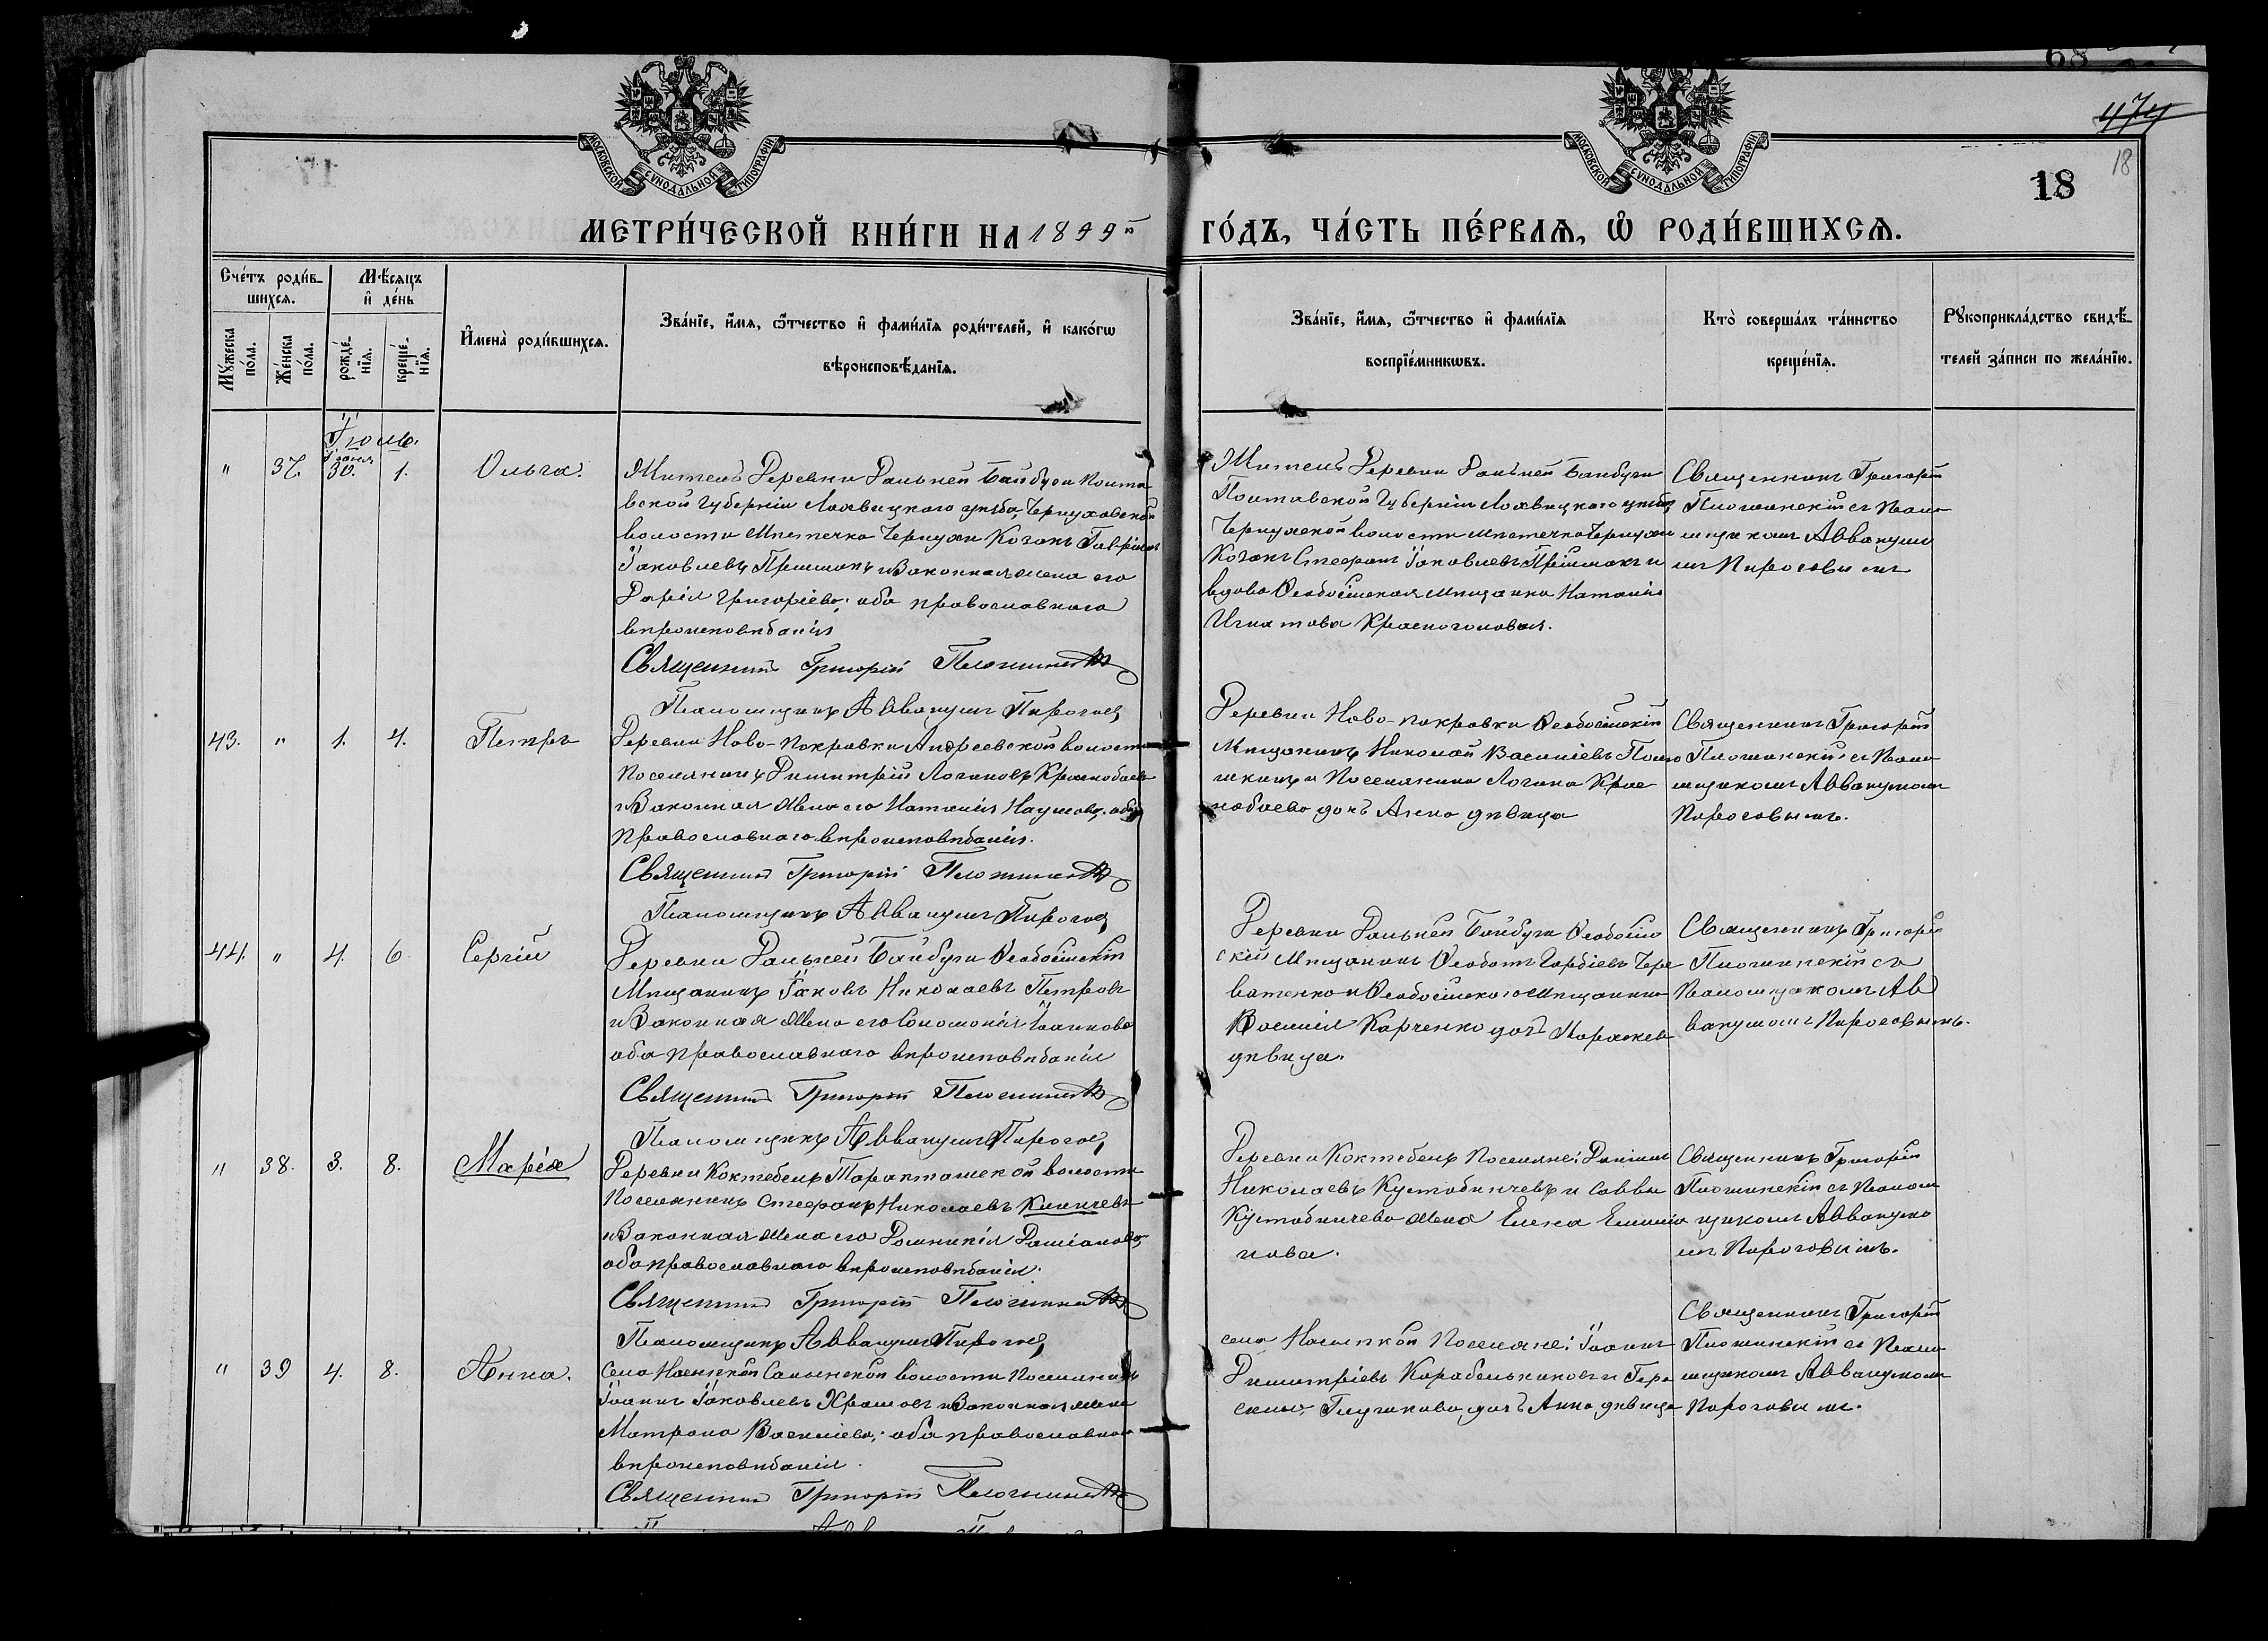 68
474
18
18
МОСКОВСКОЙ СѴНОДАЛЬНОЙ ТИПОГРАФІИ
МОСКОВСКОЙ СѴНОДАЛЬНОЙ ТИПОГРАФІИ
МЕТРИ́ЧЕСКОЙ КНИ́ГИ НА 1899й ГО́ДЪ, ЧА́СТЬ ПЕ́РВАЯ, Ѡ РОДИ́ВШИХСЯ.
Сче́тъ роди́в-
шихся.
Мѣ́сяцъ
и҆ де́нь
Мꙋжеска по́ла.
Же́нска по́ла.
рожде́-нїя.
креще́-нїя.
И҆мена̀ роди́вшихся.
Зва́нїе, и҆́мя, ѻ҆́тчество и҆ фами́лїя роди́телей, и҆ како́гѡ
вѣроисповѣ́данїя.
Зва́нїе, и҆́мя, ѻ҆́тчество и҆ фами́лїя
воспрїе́мникѡвъ.
Кто̀ соверша́лъ та́инство
креще́нїя.
Рꙋкоприкла́дство свидѣ́-
телей за́писи по жела́нїю.
Іюль.
" 37. Іюня 30. 1. Ольга.
Житель Деревни Дальней Байбуги Полта
вской Губерніи Лохвицкаго уѣзда, Чернухской
волости Мѣстечка Чернухи Козакъ Гавріилъ
Іаковлевъ Пришмакъ и Законная жена его
Дарія Григоріева; оба православнаго
вѣроисповѣданія
Священникъ Григорій
Псаломщикъ Аввакумъ Пироговъ
Житель Деревни Дальней Байбуги
Полтавской Губерніи Лохвицкаго уѣзда
Чернухской волости мѣстечка Чернухи
Козакъ Стефанъ Іаковлевъ Пришмакъ и
вдова Ѳеодосійская мѣщанка Наталія
Игнатова Красноголовая.
Священникъ Григорій
съ Псало
мщикомъ Аввакумо
мъ Пироговымъ
43. " 1. 4. Петръ
Деревни Ново-Покровки Андреевской волости
Поселянинъ Димитрій Логиновъ
и Законная жена его Наталія Наумова, оба
Православнаго вѣроисповѣданія.
Священникъ Григорій
Псаломщикъ Аввакумъ Пироговъ
Деревни Ново-покровки Ѳеодосійскій
Мѣщанинъ Николай Василіевъ
и Поселянина Логина Крас
нобаева дочь Анна дѣвица
Священникъ Григорій
съ Псало
мщикомъ Аввакумомъ
Пироговымъ.
44. " 4. 6 Сергій
Деревни Дальней Байбуги Ѳеодосійскій
Мѣщанинъ Іаковъ Николаевъ Петровъ
и Законная жена его Соломонія Іоаннова
оба православнаго вѣроисповѣданія
Священникъ Григорій
Псаломщикъ Аввакумъ Пироговъ
Деревни Дальней Байбуги Ѳеодосій
скій Мѣщанинъ Ѳеодотъ Гордіевъ Чере
ватенко и Ѳеодосійскаго Мѣщанина
Василія Карченко дочь Параскева
дѣвица.
Священникъ Григорій
съ
Псаломщикомъ Ав
вакумомъ Пироговымъ.
" 38. 3. 8. Марія
Деревни Коктебель Таракташской волости
Поселянинъ Стефанъ Николаевъ
и Законная жена его Домникія Даміанова,
оба православнаго вѣроисповѣданія.
Священникъ Григорій
Псаломщикъ Аввакумъ Пироговъ
Деревни Коктебель Поселяне: Даніилъ
Николаевъ Кустабинчевъ и Саввы
Кустабинчева жена Елена Емилiа
нова.
Священникъ Григорій
съ Псалом
щикомъ Аввакумо
мъ Пироговымъ.
" 39 4. 8. Анна.
Села Насыпкой Салынской волости Поселянинъ
Іоаннъ Іаковлевъ Храмовъ и Законная жена
Матрона Василіева; оба православнаго
вѣроисповѣданія.
Священникъ Григорій
села Насыпкой Поселяне: Іоаннъ
Димитріевъ Карабельниковъ и Гера
сима Глушкова дочь Анна дѣвица
Священникъ Григорій
съ Псало
мщикомъ Аввакумомъ
Пироговымъ.